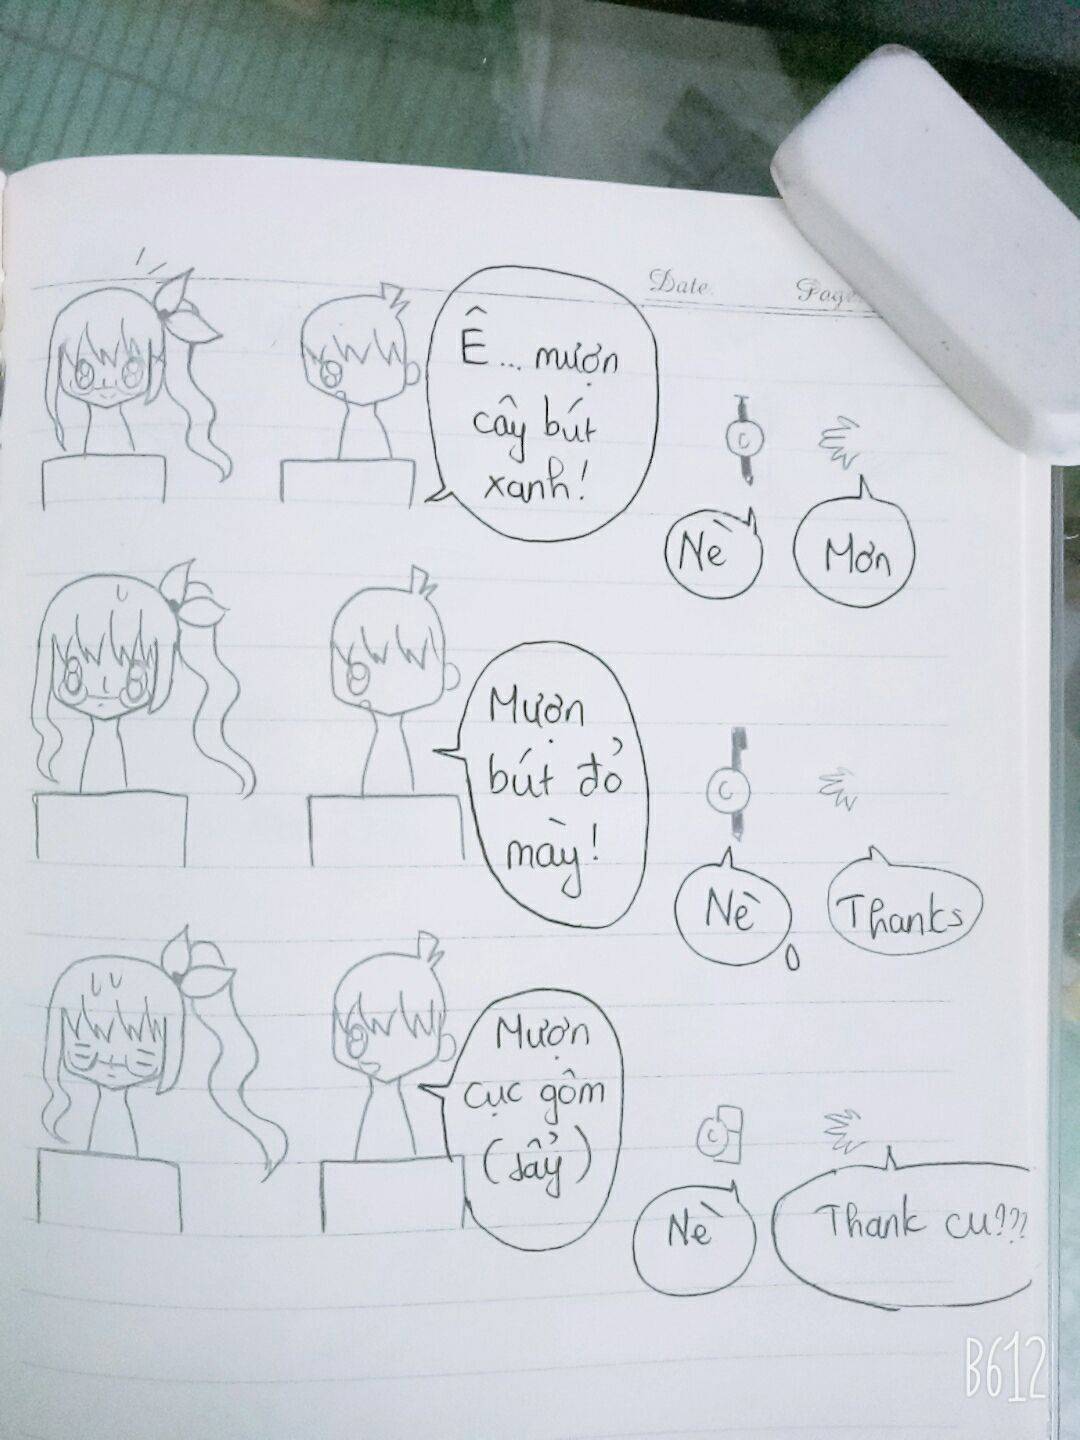 Date.
Page
Ê... mượn
cây bút
xanh!
C
Nè
Mơn
Mượn
bút đỏ
mày!
C
Nè
Thanks
Mượn
cục gôm
(tẩy)
C
Nè
Thank cu???
B612